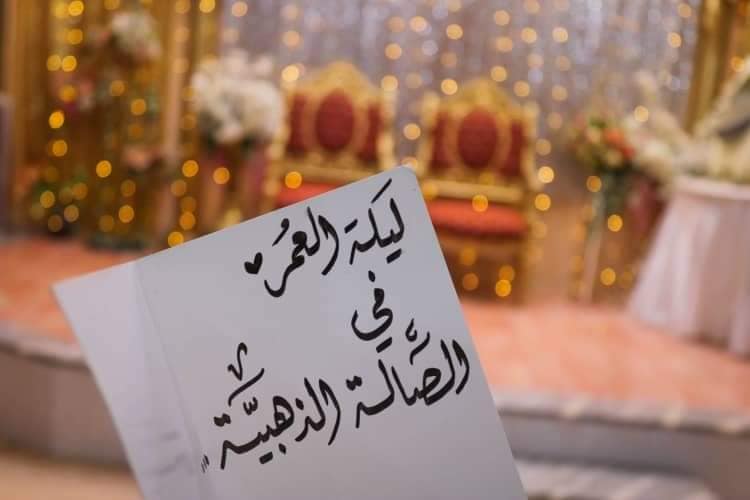 ليلة العمُر
في
الصَّالة الذهبيَّة